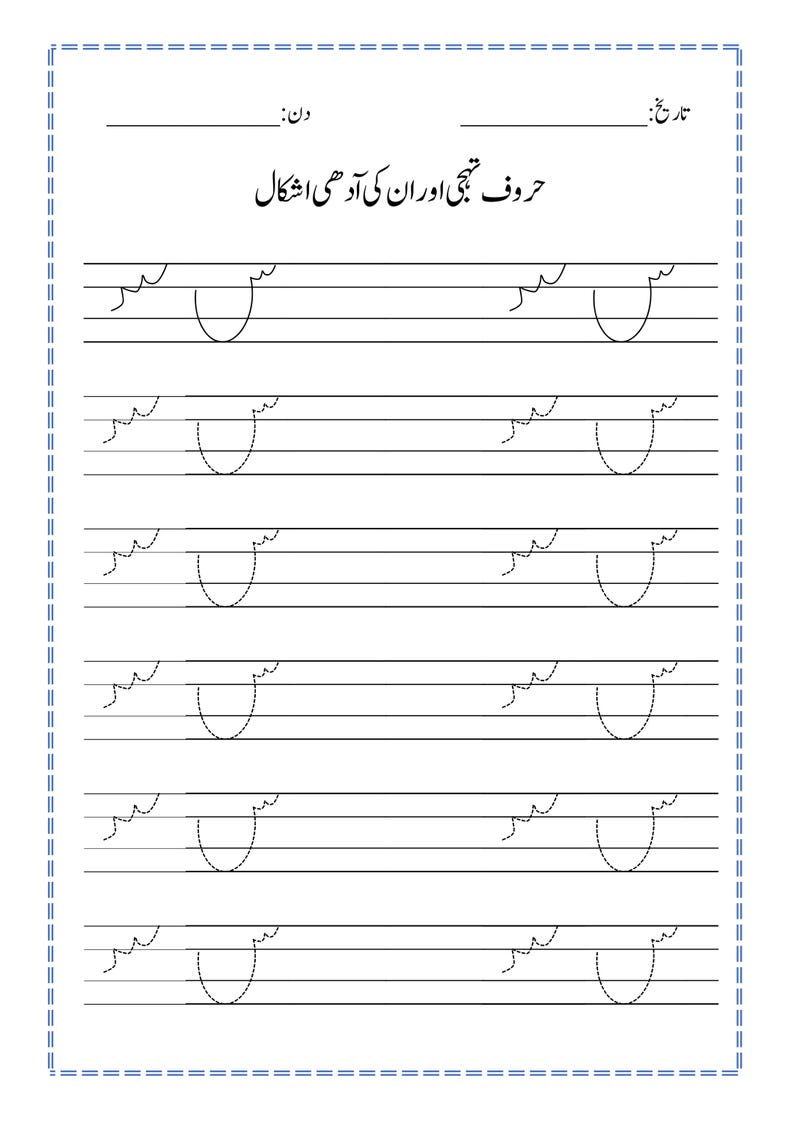 تاریخ:____________ دن:____________
حروف تہجی اور ان کی آدھی اشکال
س سـ س سـ
س سـ س سـ
س سـ س سـ
س سـ س سـ
س سـ س سـ
س سـ س سـ